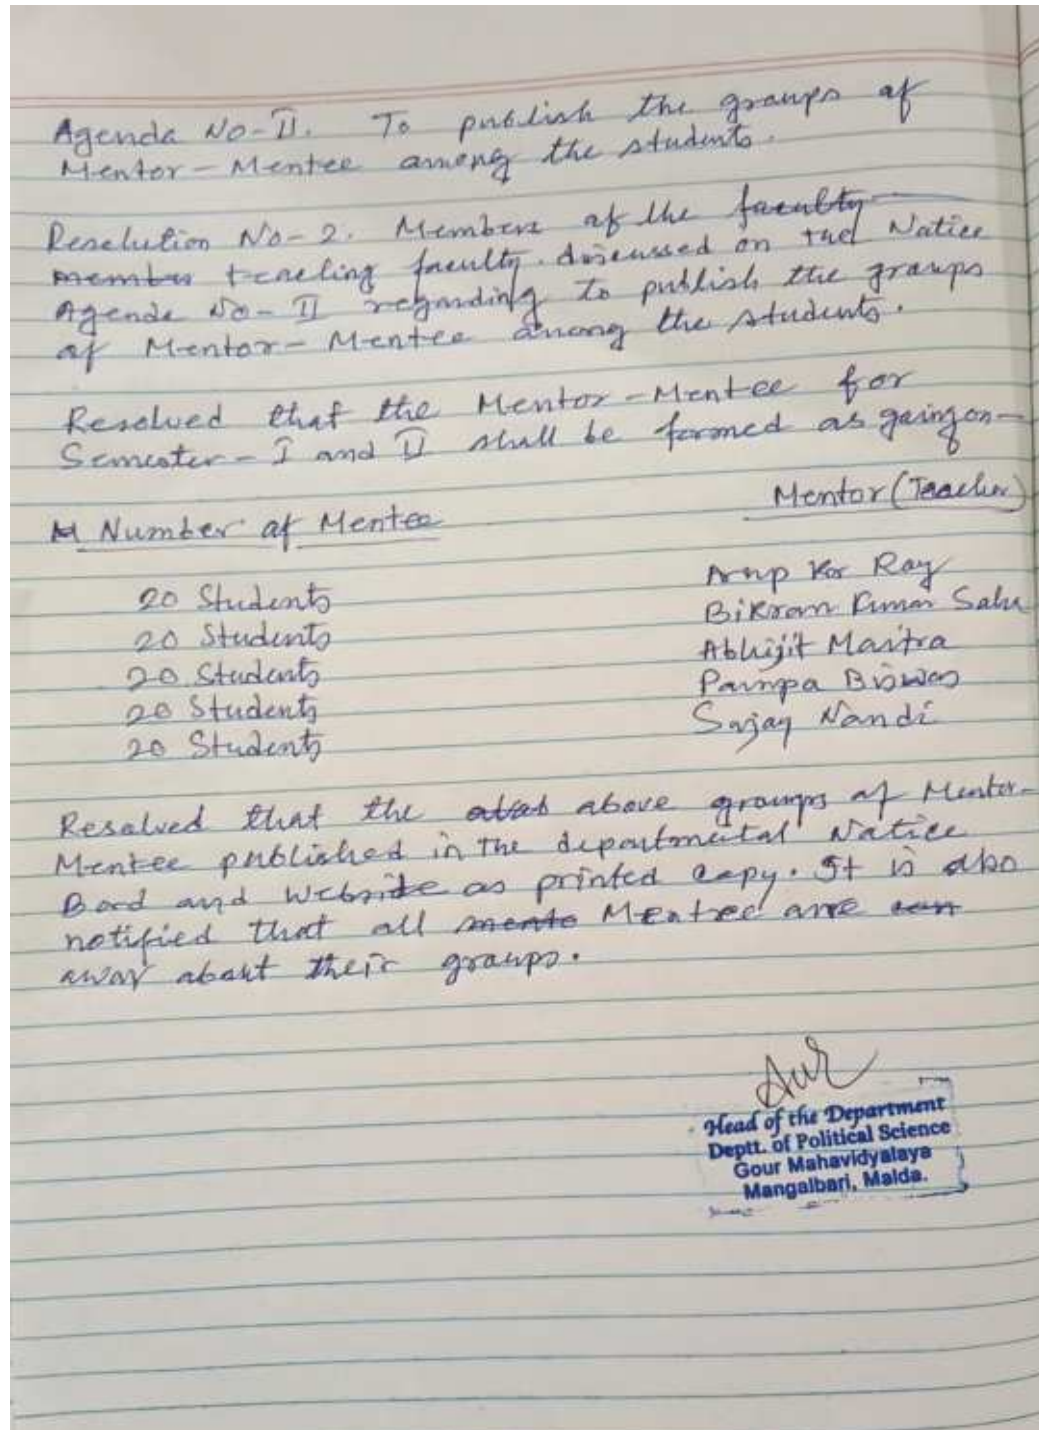 Agenda No-II. To publish the groups of
Mentor-Mentee among the students.
Resolution No-2. Members of the faculty
member teaching faculty discussed on the Notice
Agenda No-II regarding to publish the groups
of Mentor-Mentee among the students.
Resolved that the Mentor-Mentee for
Semester-I and II shall be formed as going on-
Number of Mentee Mentor (Teacher)
20 Students Arup Kr Ray
20 Students Bikram Kumar Saha
20 Students Abhijit Maitra
20 Students Pampa Biswas
20 Students Sajay Nandi
Resolved that the above groups of Mentor-
Mentee published in the departmental Notice
Bord and Website as printed copy. It is also
notified that all Mentee are
awar about their groups.
Head of the Department
Deptt. of Political Science
Gour Mahavidyalaya
Mangalbari, Malda.